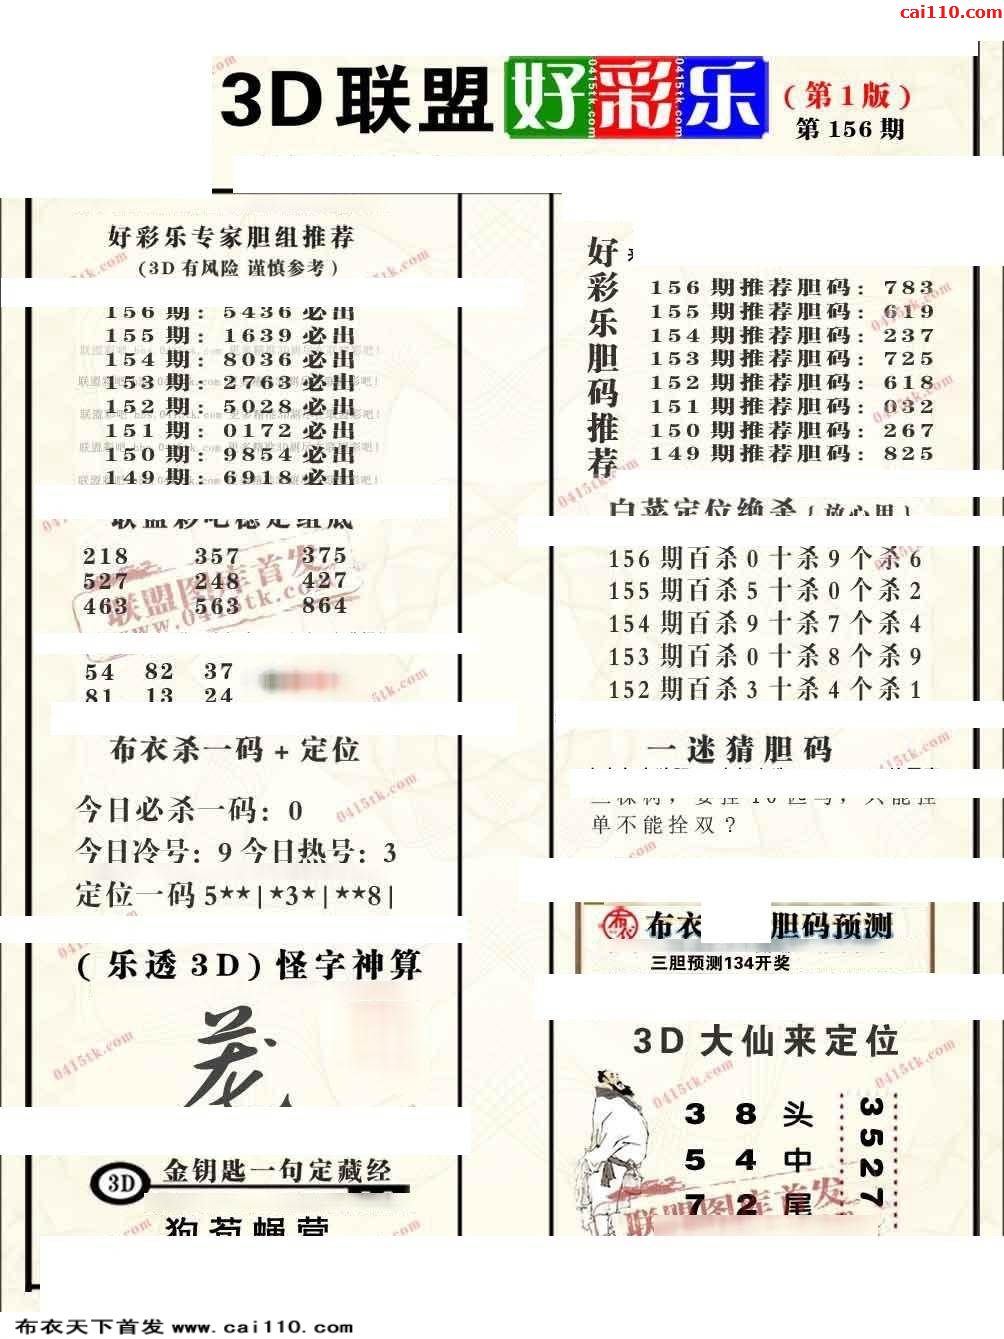 cai110.com
3D联盟好彩乐
(第1版)
第156期
好彩乐专家胆组推荐
(3D有风险 谨慎参考)
156期: 5436必出
155期: 1639必出
154期: 8036必出
153期: 2763必出
152期: 5028必出
151期: 0172必出
150期: 9854必出
149期: 6918必出
218 357 375
527 248 427
463 563 864
联盟图库首发
www.0415tk.com
54 82 37
81 13 24
布衣杀一码+定位
今日必杀一码: 0
今日冷号: 9 今日热号: 3
定位一码5**|*3*|**8|
(乐透3D)怪字神算
3D
金钥匙一句定藏经
狗苟蝇营
好彩乐胆码推荐
156期推荐胆码: 783
155期推荐胆码: 619
154期推荐胆码: 237
153期推荐胆码: 725
152期推荐胆码: 618
151期推荐胆码: 032
150期推荐胆码: 267
149期推荐胆码: 825
156期百杀0十杀9个杀6
155期百杀5十杀0个杀2
154期百杀9十杀7个杀4
153期百杀0十杀8个杀9
152期百杀3十杀4个杀1
一迷猜胆码
单不能拴双?
布衣 胆码预测
三胆预测134开奖
3D大仙来定位
3 8 头
5 4 中
7 2 尾
3527
联盟图库首发
0415tk.com
布衣天下首发 www.cai110.com